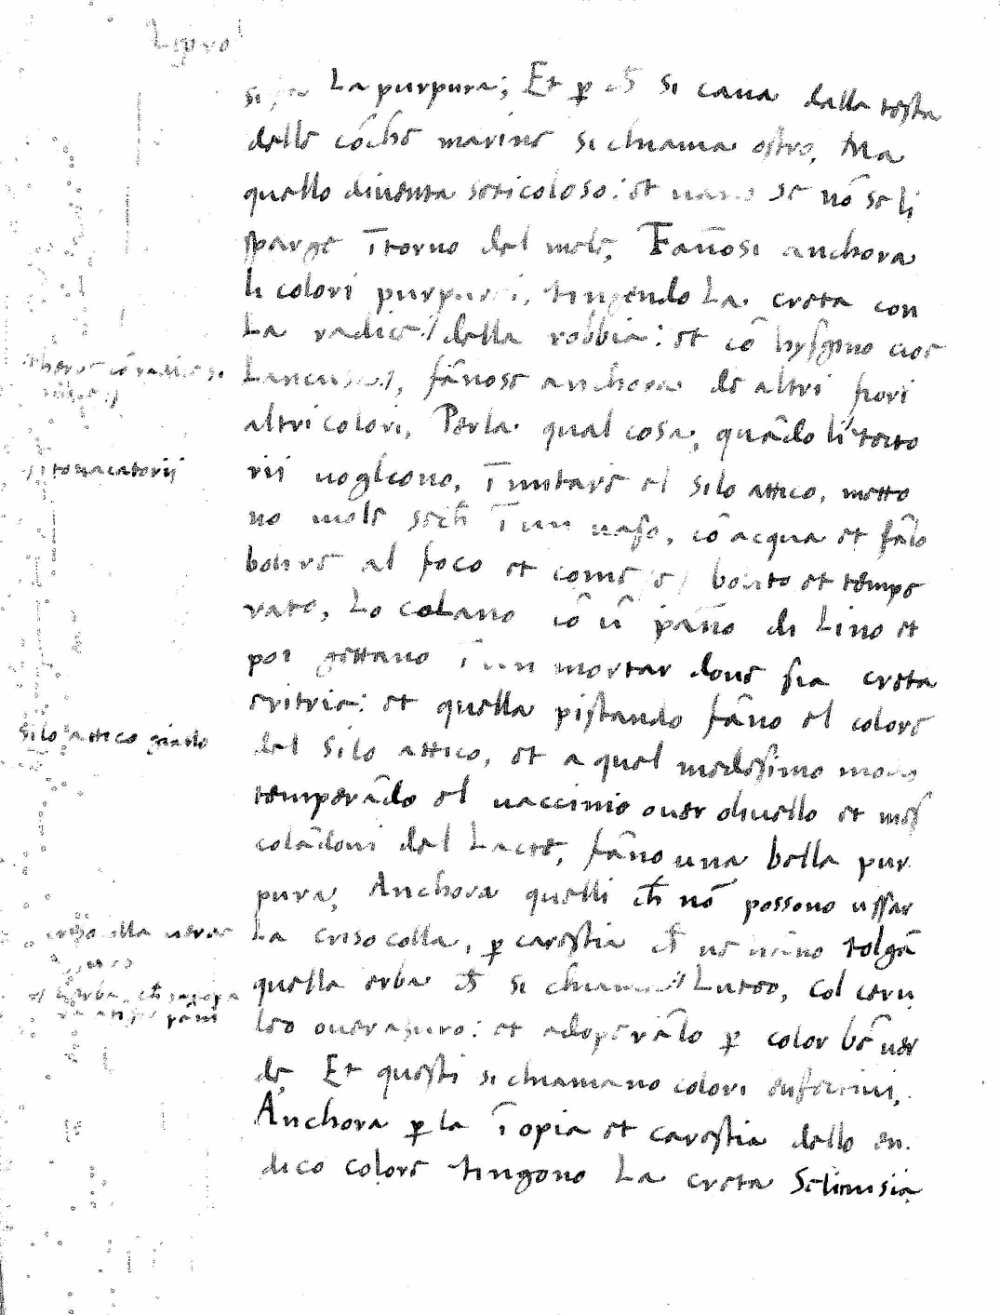 Libro
La purpura; Et p̱ ch̄ si caua dalla testa
delle cōche marine si chiama ostro, Ma
quello diuenta seticoloso: et uano se nō se li
sparge ītorno del mele, Fānosi anchora
li colori purpurei, tingendo La creta con
La radice della robbia: et cō hysgino cioe
fānose anchora de altri fiori
altri colori, Perla qual cosa, quādo li tecto
rii uogliono, īmitare el silo attico, metto
no uiole sech̄ ī un uaso, cō acqua et fālo
bolire al foco et come e bolito et tempe
rato, Lo colano cō ū pāno di Lino et
poi gettano ī un mortar doue sia creta
eritria: et quella pistando fāno el colore
del silo attico, et a quel medesimo modo
temperādo el uaccinio ouer oliuello et mes
colādoui del Lacte, fāno una bella pur
pura, Anchora quelli ch̄ nō possono ussar
La crisocolla, p̱ carestia ch̄ ne hāno tolgā
quella erba ch̄ si chiama Luteo, col ceru
leo ouerazuro: et adoperālo p̱ color bē uer
de, Et questi si chiamano colori
Anchora p̱ la īopia et carestia dello en
dico colore tingono La creta Selinusia
tonacatorii
silo attico giallo
erba ch̄
pāni